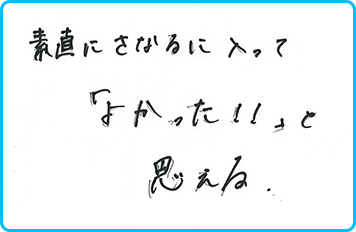 素直にさなるに入って
「よかった!!」と
思える.